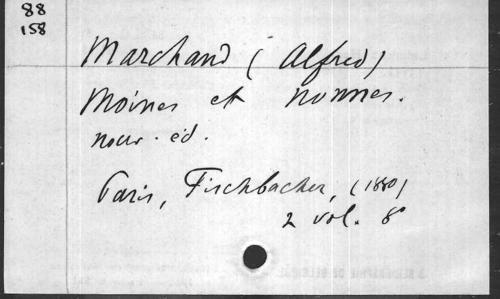 88
158
Marchand (Alfred)
Moines et nonnes.
nouv. éd.
Paris, Fischbacher, (1880)
2 vol. 8°